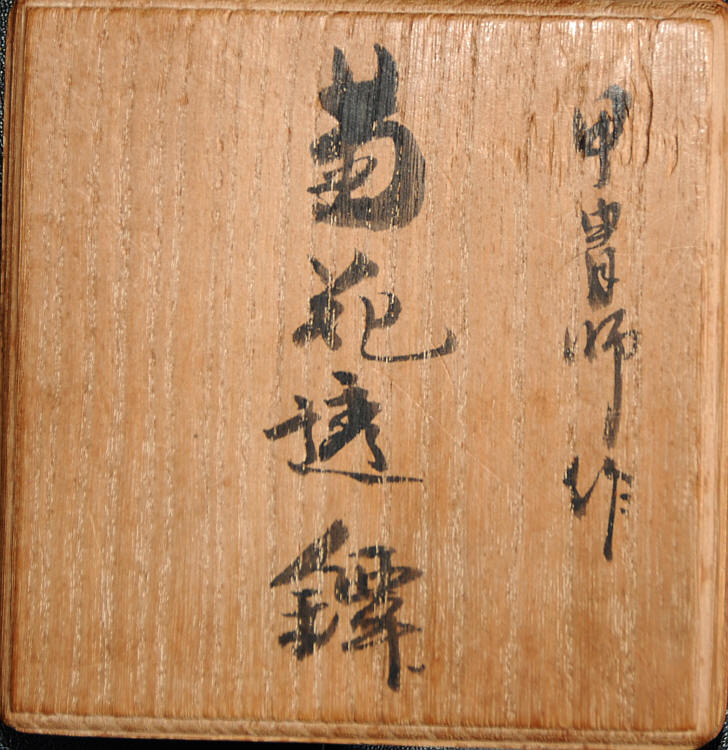 甲冑師作
菊花透鐔